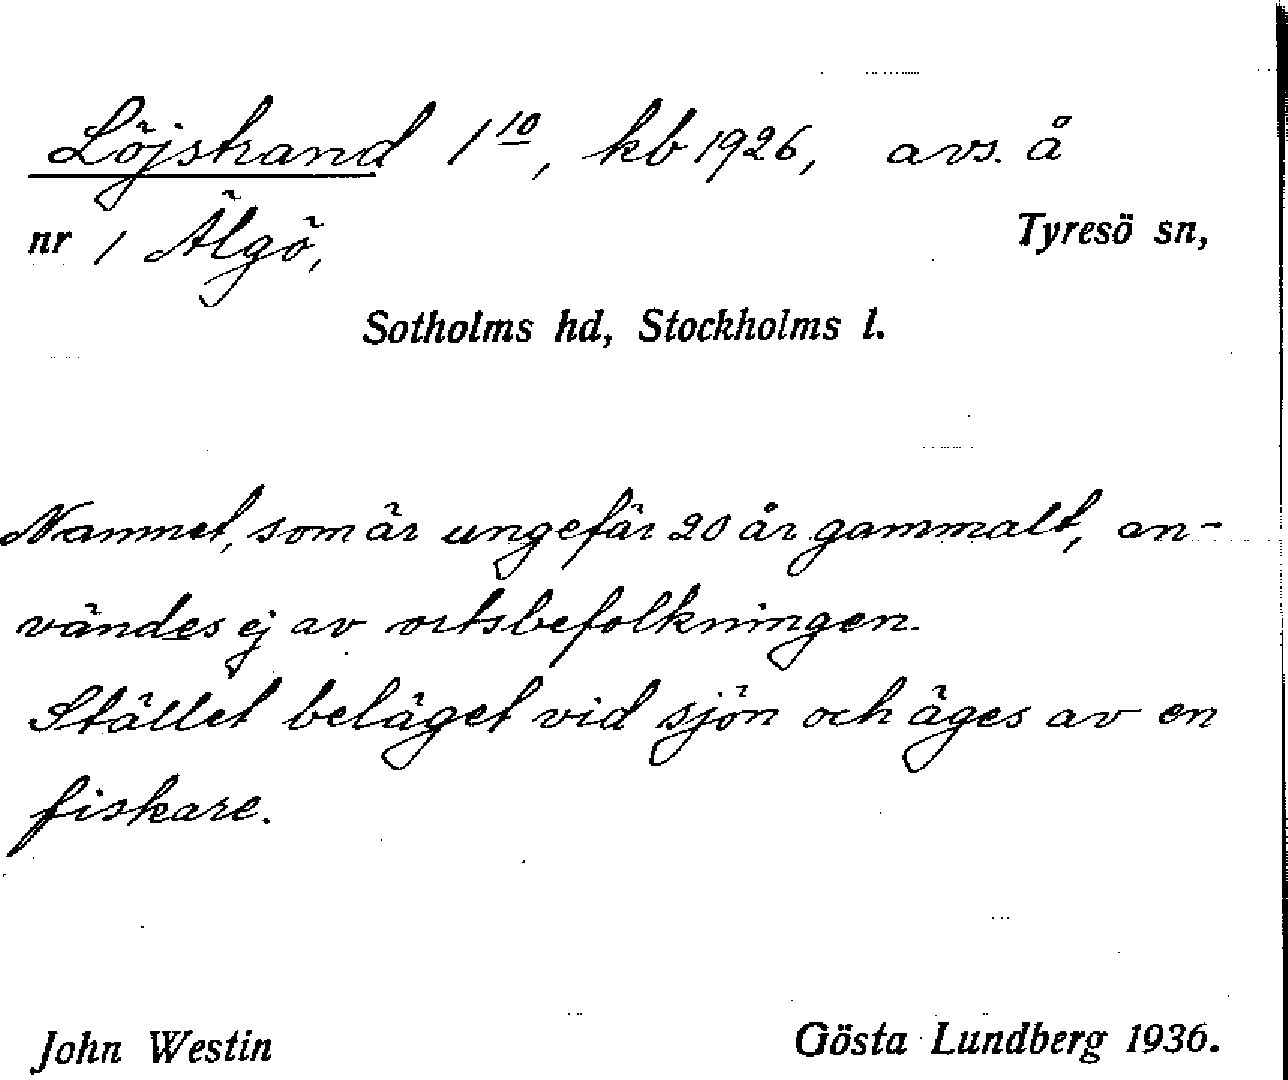 Löjstrand 1 10, kb 1926, avs. å
nr 1 Älgö, Tyresö sn,
Sotholms hd, Stockholms l.
Namnet, som är ungefär 20 år gammalt, an-
vändes ej av ortsbefolkningen.
Stället beläget vid sjön och äges av en
fiskare.
John Westin Gösta Lundberg 1936.